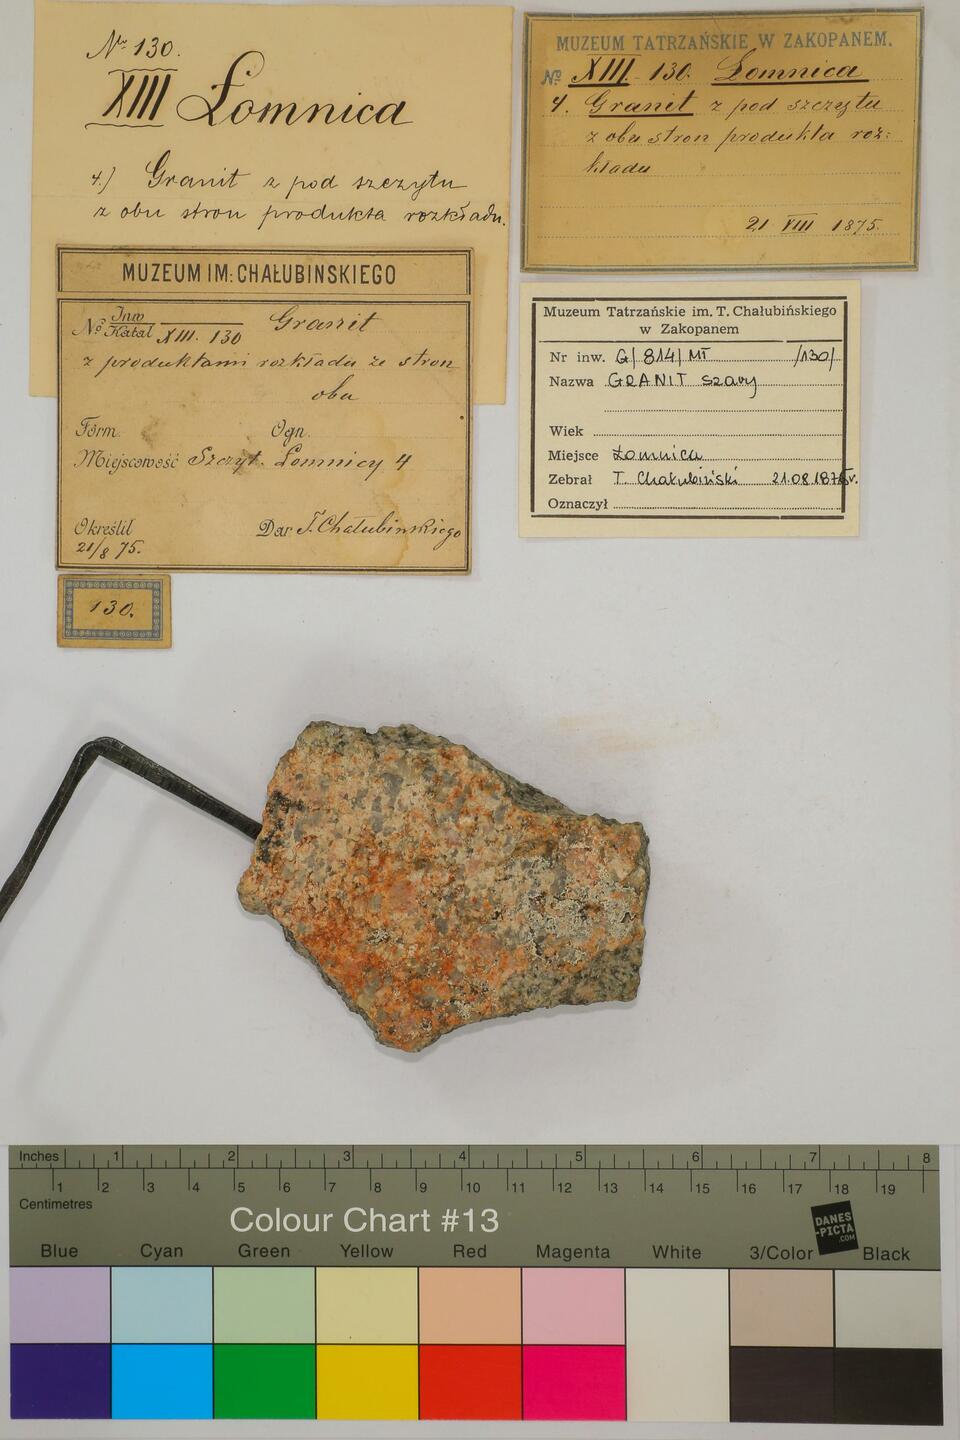 No 130.
XIII Łomnica
4.) Granit z pod szczytu
z obu stron produkta rozkładu.
MUZEUM TATRZAŃSKIE W ZAKOPANEM.
No XIII - 130. Łomnica
4. Granit z pod szczytu
z obu stron produkta roz=
kładu
21 VIII 1875.
MUZEUM IM: CHAŁUBINSKIEGO
No Inw Katal XIII. 130 Granit
z produktami rozkładu ze stron
obu
Form. Ogn.
Miejscowość Szczyt. Łomnicy 4
Określił Dar. T. Chałubińskiego
21/8 75.
130.
Muzeum Tatrzańskie im. T. Chałubińskiego
w Zakopanem
Nr inw. G/814/MT /130/
Nazwa GRANIT szary
Wiek
Miejsce Łomnica
Zebrał T. Chałubiński 21.08.1875r.
Oznaczył
Inches 1 2 3 4 5 6 7 8
1 2 3 4 5 6 7 8 9 10 11 12 13 14 15 16 17 18 19
Centimetres
Colour Chart #13
DANES
-PICTA
.COM
Blue Cyan Green Yellow Red Magenta White 3/Color Black